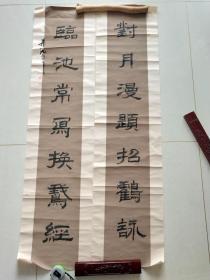 對月漫題招鶴詠
臨池常寫換鵞經